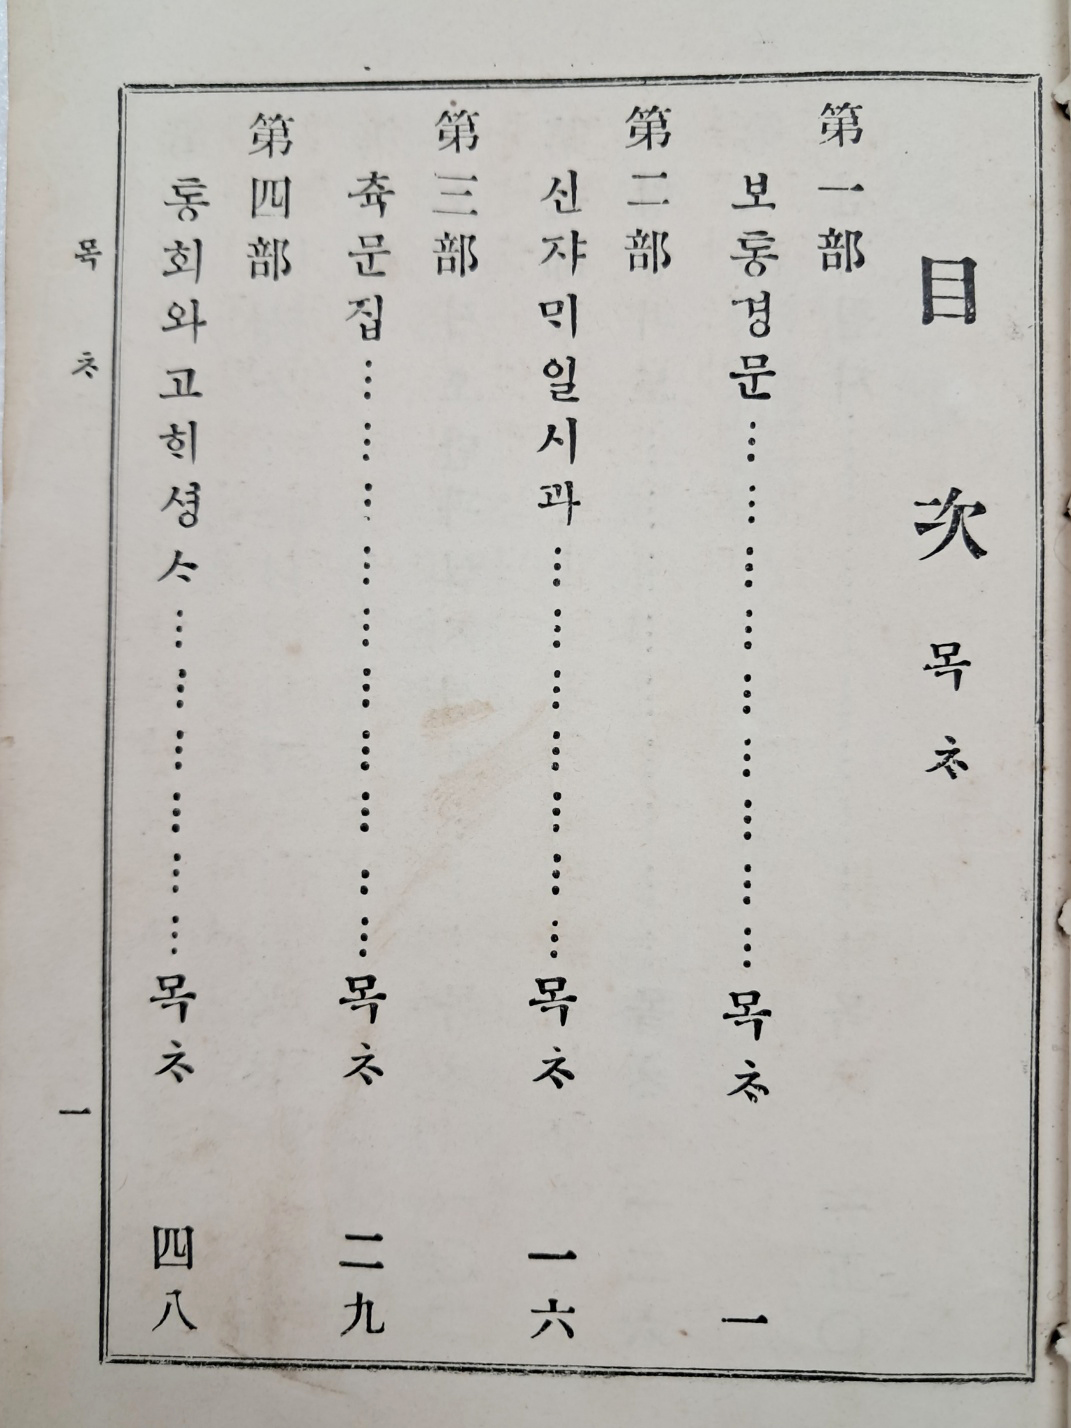 目次 목ᄎᆞ
第一部
보통경문……………………목ᄎᆞ 一
第二部
신쟈ᄆᆡ일시과……………………목ᄎᆞ 一六
第三部
츅문집……………………목ᄎᆞ 二九
第四部
통회와고ᄒᆡ셩ᄉᆞ……………………목ᄎᆞ 四八
목ᄎᆞ 一